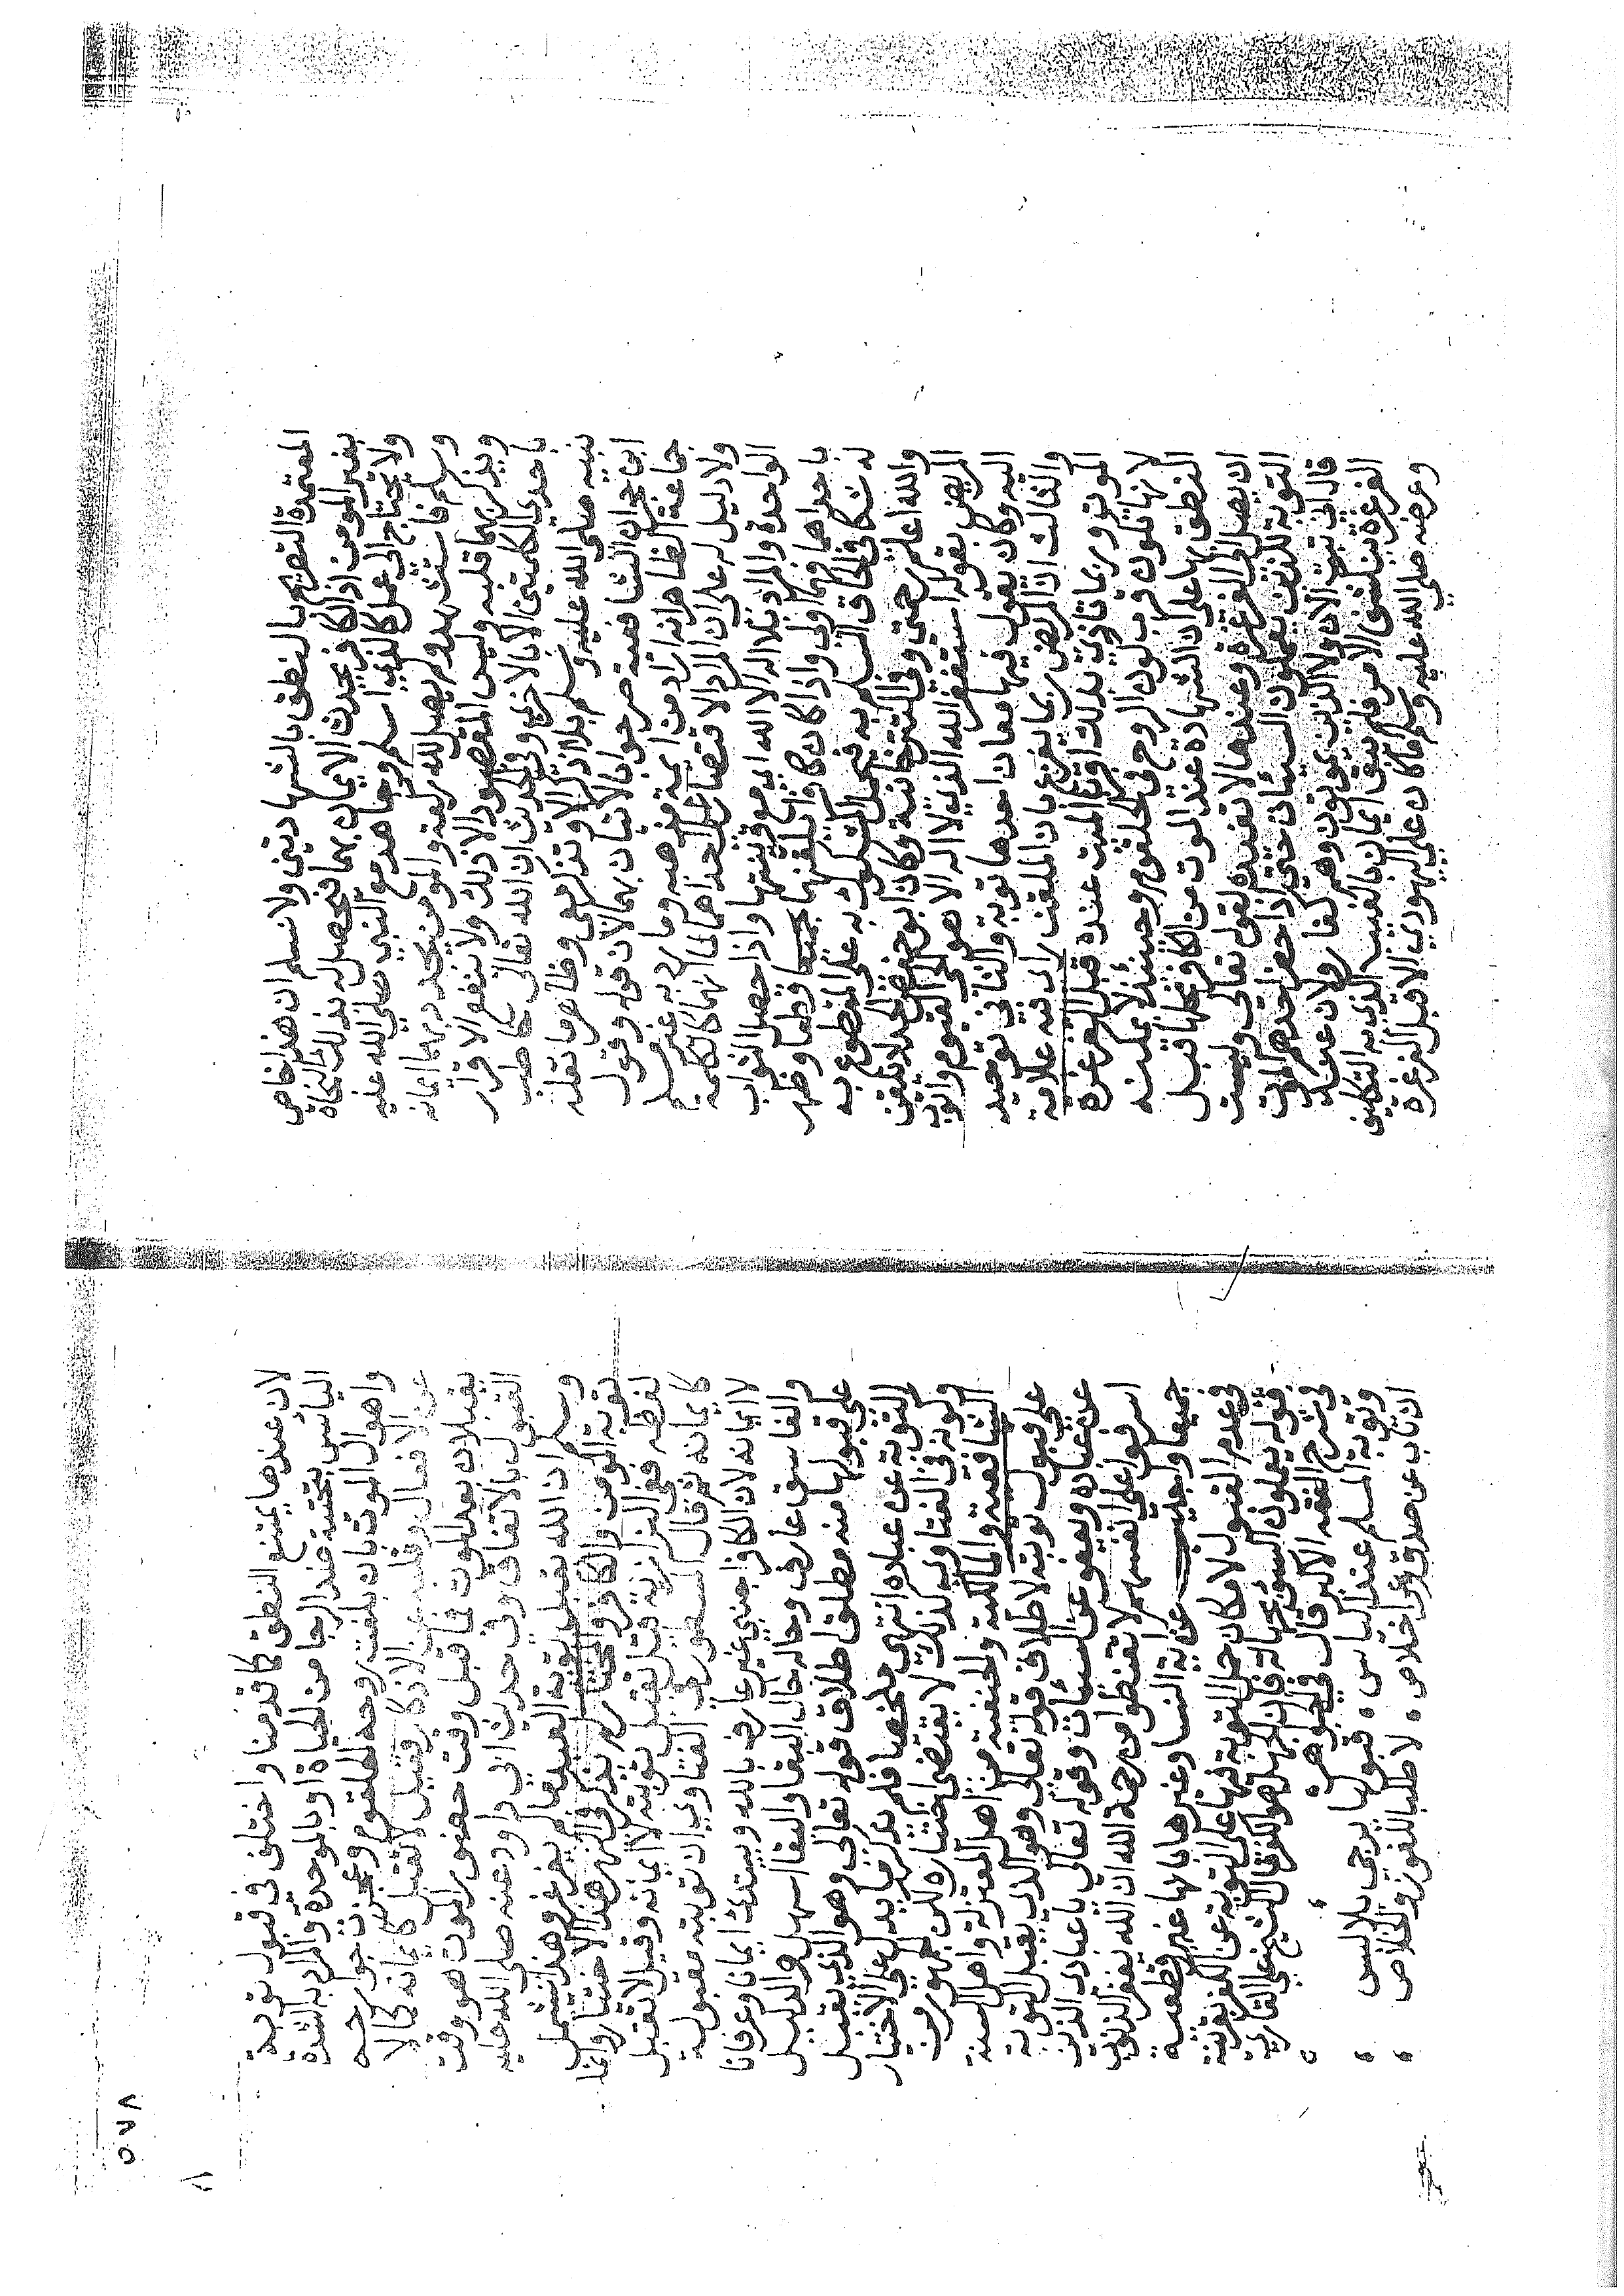 المعتمدة التصريح بالنطق بالشهادتين ولا نسلم ان هذا خاص
بغير المومن اذ الكافر يحدث الايمان بهما فتحصل له بذلك النجاة
ولا يحتاج الى عمل كالذي اسلم وجاهد مع النبي صلى الله عليه
وسلم فاستشهد ولم يصل لله ركعة والمومن يجدد بهما ايمانه
ويذكر بهما قلبه وليس المقصود الا ذلك ولا ينفع الاقرار
باحدي الكلمتين الا بالاخري وفي الحديث ان الله تعالى يخاطب
نبيه صلى الله عليه وسلم بلا اذكر الا وتذكر معي وظاهر ما نقله
ابن حجر ان الشافعية صرحوا بالاتيان بهما لان قوله وقول
جماعة الظاهر انه اراد من ايمة مذهبه وما رد به غير مسلم
ولا دليل له على ان المراد الاقتصار على احداهما لانهما كالكلمة
الواحدة والمراد بلا اله الا الله اي مع قرينتها واذا حصل الثواب
باحداهما فبهما اولى واذا كان كافرا يلقنهما جميعا قطعا وظهر
له شك في الحاق المسلم به فيحمل المشكوك به على المقطوع به
والله اعلم حتى وفي التترخانية وكان ابو حفص الحداد يلقن
المريض بقوله استغفر الله الذي لا اله الا هو الحي القيوم واتوب
اليه وكان يقول فيها معان احدها توبة والثاني توحيد
والثالث ان المريض ربما يفزع بان الملقن راى فيه علامة
الموت وربما تاذي بذلك اقربا الميت عنده قبل الغرغرة
لانها تكون قرب كون الروح في الحلقوم وحينئذ لا يمكنه
النطق بها على ان الشهادة عند الموت من الكافر محلها قبل
ان يصل الى الغرغرة وعندها لا تفيده لقوله تعالى وليست
التوبة للذين يعملون السيئات حتى اذا حضر احدهم الموت
قال اني تبت الان ولا الذين يموتون وهم كفار ولان عند
الغرغرة الامر فلم يبق ايمان بالغيب الذي به التكليف
وعرضه صلى الله عليه وسلم ما كان على اليهودي الا قبل الغرغرة
لان عندها يمتنع النطق كما قدمنا واختلف في قبول توبة
اليائس بتحتية ضد الرجا من الحياة او بالموحدة والمراد به الشدة
واهوال الموت بان بلغت روحه الحلقوم وعجزت جوارحه
عن الافعال وقلبه عن الاذكار وقيل لا تقبل كايمانه كما لا
يقبلان بعد الموت فما قبل وقت حضور الموت هو وقت
القبول بالاتفاق وفي حديث ابي داود عنه صلى الله عليه
وسلم ان الله يقبل توبة العبد ما لم يغرغر وهذا يشمل
توبة المومن والكافر والمختار لم يذكر في النهر هذا الاختيار وانما
لفظه ففي البزازية قيل تقبل توبته لا ايمانه وقيل لا تقبل
كايمانه ثم قال المسطور في الفتاوي ان توبته مقبولة
لا ايمانه لان الكافر اجنبي غير عارف بالله ويبتدئ ايمانا وعرفانا
والفاسق عارف وحاله حال البقا والبقا اسهل والدليل
على قبولها منه مطلقا اطلاق قوله تعالى وهو الذي يقبل
التوبة عن عباده انتهى ملخصا فلم يذكر ما يدل على الاختيار
وكونه في الفتاوي كذلك لا يقتضي اختياره لكن جمهور من
الشافعية والمالكية والحنفية من اهل المعتزلة واهل السنة
على قبول توبته لاطلاق قوله تعالى وهو الذي يقبل التوبة
عن عباده ويعفو عن السيئات وقوله تعالى يا عبادي الذين
اسرفوا على انفسهم لا تقنطوا من رحمة الله ان الله يغفر الذنوب
جميعا واجيب عن اية النسا وغيرها بانها غير قطعية
في عدم القبول لامكان حمل التوبة فيها على التوبة عن الكفر بقرينة
قوله يعملون السوء بجهالة فان الجهل هو الكفر قال الشيخ علي القاري
في شرح الفقه الاكبر قال في الجوهرة
وتوبة المسلم عند الياس ٥ قبولها يرجي بلا لبس
ان تاب عن صدق وعن اخلاص ٥ لاطلب الفوز والخلاص
٥٧٨